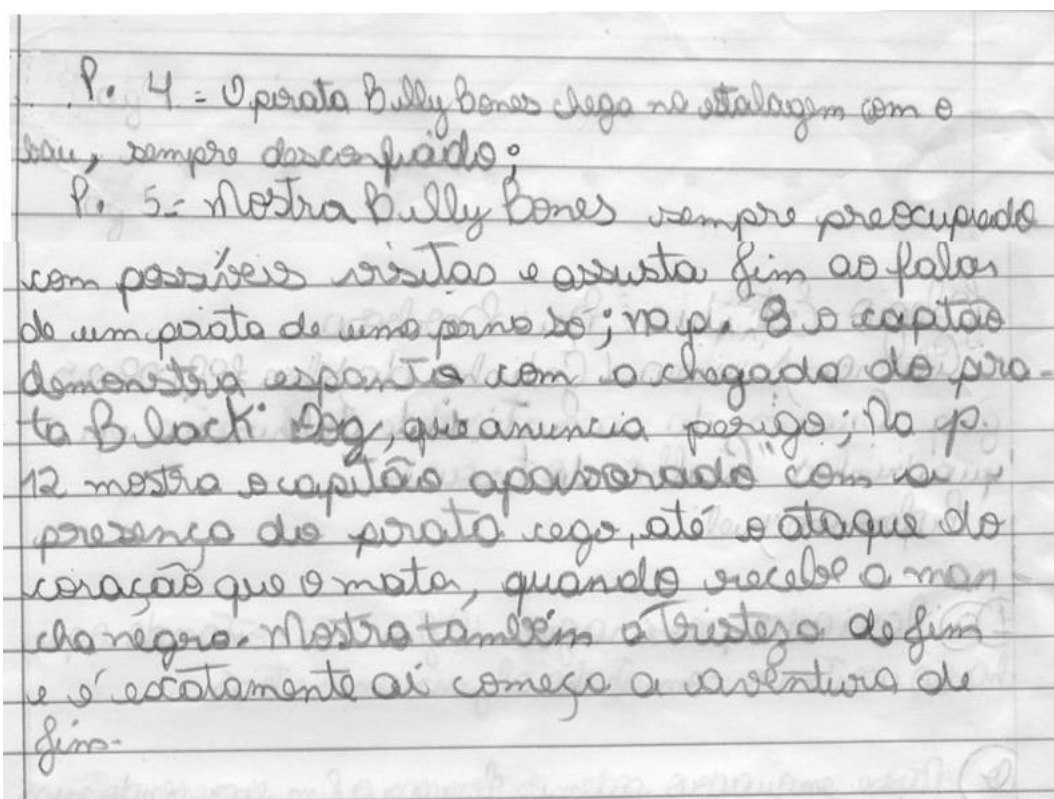 P. 4 = O pirata Billy Bones chega na estalagem com o
bau, sempre desconfiado;
P. 5 = Mostra Billy Bones sempre preocupado
com possíveis visitas e assusta Jim ao falar
do um pirata de uma perna só; na p. 8 o capitão
demonstra espanto com a chegada do pira-
ta Black Dog, que anuncia perigo; Na p.
12 mostra o capitão apavorado com a
presença do pirata cego, até o ataque do
coração que o mata, quando recebe a man
cha negra. Mostra também a tristeza do Jim
e é exatamente aí começa a aventura de
Jim.